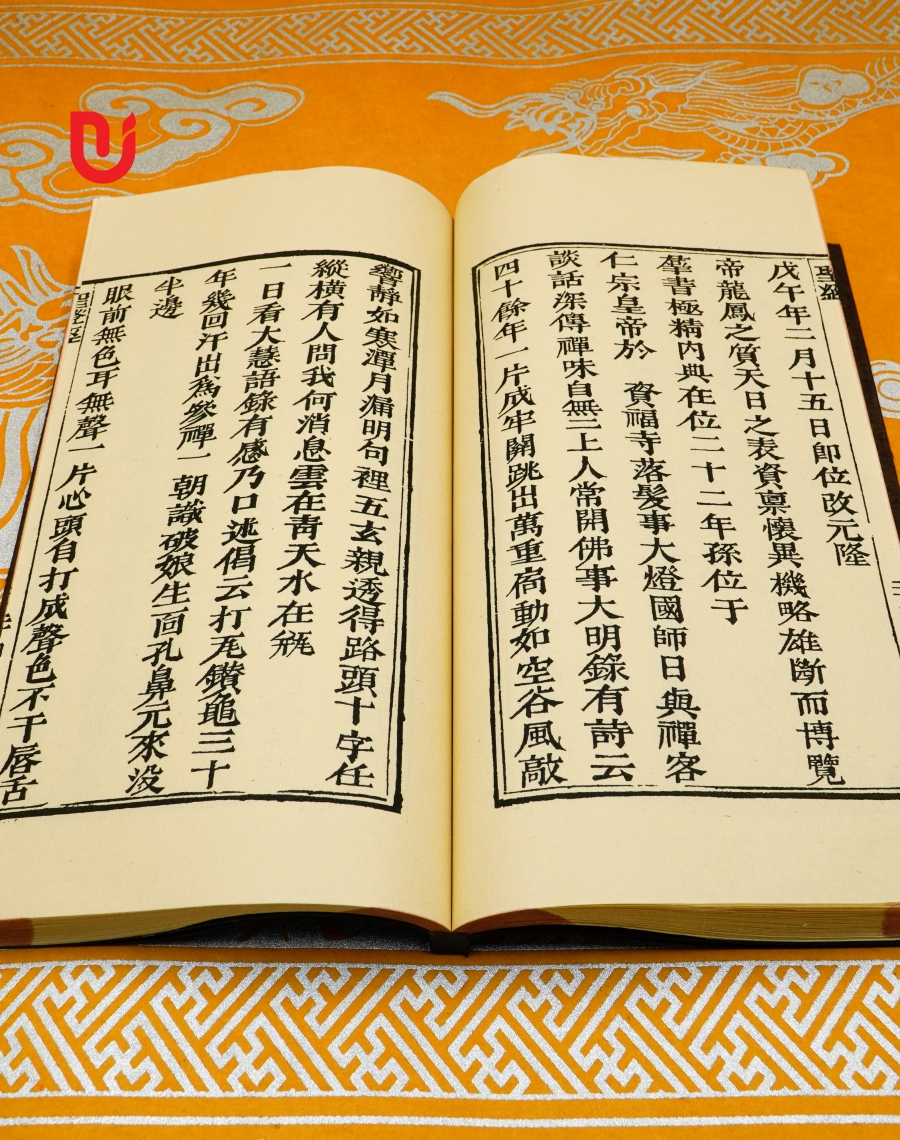 戊午年二月十五日即位改元隆
帝龍鳳之質天日之表資禀懷異機略雄斷而博覽
羣書極精內典在位二十二年孫位于
仁宗皇帝於 資福寺落髮事大燈國師日與禪客
談話深傳禪味自無三上人常開佛事大明錄有詩云
四十餘年一片成牢關跳出萬重 動如空谷風敲
響靜如寒潭月漏明句裡五玄親透得路頭十字任
縱橫有人問我何消息雲在靑天水在瓶
一日看大慧語錄有感乃口述偈云打瓦鑽龜三十
年幾回汗出為參禪一朝識破娘生面孔鼻元來没
半邊
眼前無色耳無聲一片心頭自打成聲色不干唇舌